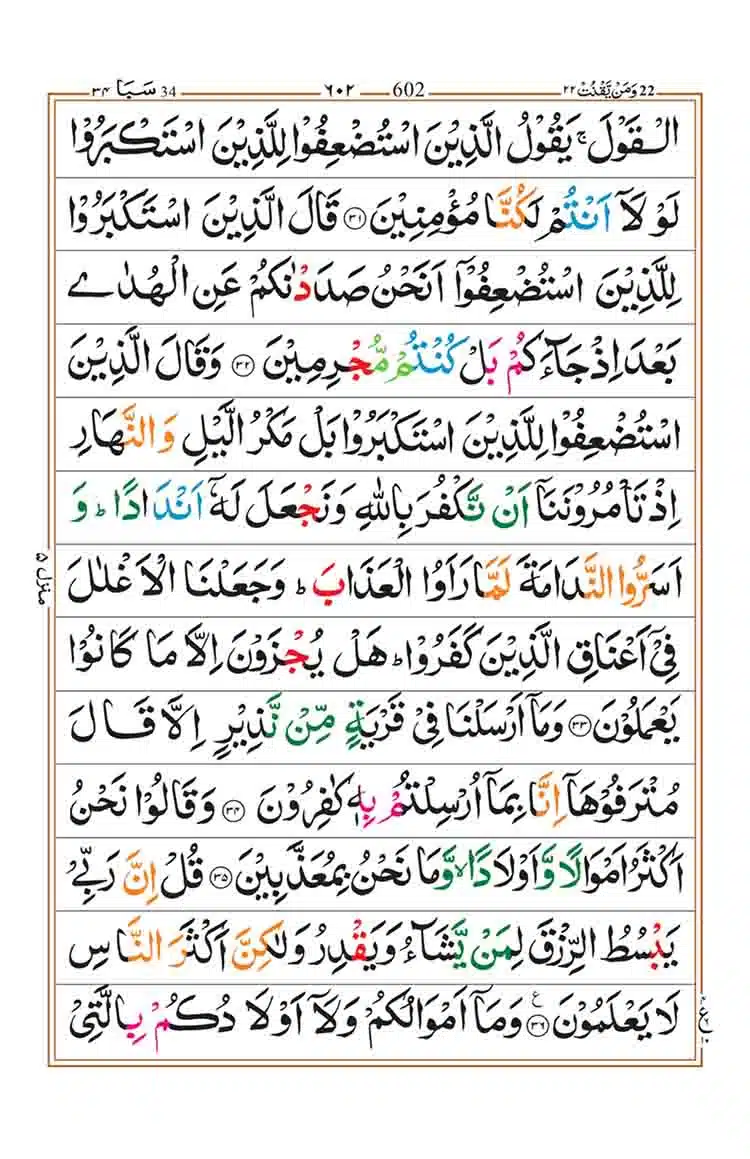 22 وَمَنْ يَّقْنُتْ ٢٢ 602 ٦٠٢ 34 سَبَا ٣٤
الْقَوْلَ ۚ يَقُوْلُ الَّذِيْنَ اسْتُضْعِفُوْا لِلَّذِيْنَ اسْتَكْبَرُوْا
لَوْ لَاۤ اَنْتُمْ لَكُنَّا مُؤْمِنِيْنَ ﴿٣١﴾ قَالَ الَّذِيْنَ اسْتَكْبَرُوْا
لِلَّذِيْنَ اسْتُضْعِفُوْۤا اَنَحْنُ صَدَدْنٰكُمْ عَنِ الْهُدٰى
بَعْدَ اِذْ جَآءَكُمْ بَلْ كُنْتُمْ مُّجْرِمِيْنَ ﴿٣٢﴾ وَقَالَ الَّذِيْنَ
اسْتُضْعِفُوْا لِلَّذِيْنَ اسْتَكْبَرُوْا بَلْ مَكْرُ الَّيْلِ وَالنَّهَارِ
اِذْ تَاْمُرُوْنَنَاۤ اَنْ نَّكْفُرَ بِاللّٰهِ وَنَجْعَلَ لَهٗۤ اَنْدَادًا ؕ وَ
اَسَرُّوا النَّدَامَةَ لَمَّا رَاَوُا الْعَذَابَ ؕ وَجَعَلْنَا الْاَغْلٰلَ
فِيْۤ اَعْنَاقِ الَّذِيْنَ كَفَرُوْا ؕ هَلْ يُجْزَوْنَ اِلَّا مَا كَانُوْا
يَعْمَلُوْنَ ﴿٣٣﴾ وَمَاۤ اَرْسَلْنَا فِيْ قَرْيَةٍ مِّنْ نَّذِيْرٍ اِلَّا قَالَ
مُتْرَفُوْهَاۤ اِنَّا بِمَاۤ اُرْسِلْتُمْ بِهٖ كٰفِرُوْنَ ﴿٣٤﴾ وَقَالُوْا نَحْنُ
اَكْثَرُ اَمْوَالًا وَّاَوْلَادًا ۙ وَّمَا نَحْنُ بِمُعَذَّبِيْنَ ﴿٣٥﴾ قُلْ اِنَّ رَبِّيْ
يَبْسُطُ الرِّزْقَ لِمَنْ يَّشَآءُ وَيَقْدِرُ وَلٰكِنَّ اَكْثَرَ النَّاسِ
لَا يَعْلَمُوْنَ ﴿٣٦﴾ ع وَمَاۤ اَمْوَالُكُمْ وَلَاۤ اَوْلَادُكُمْ بِالَّتِيْ
منزل ٥